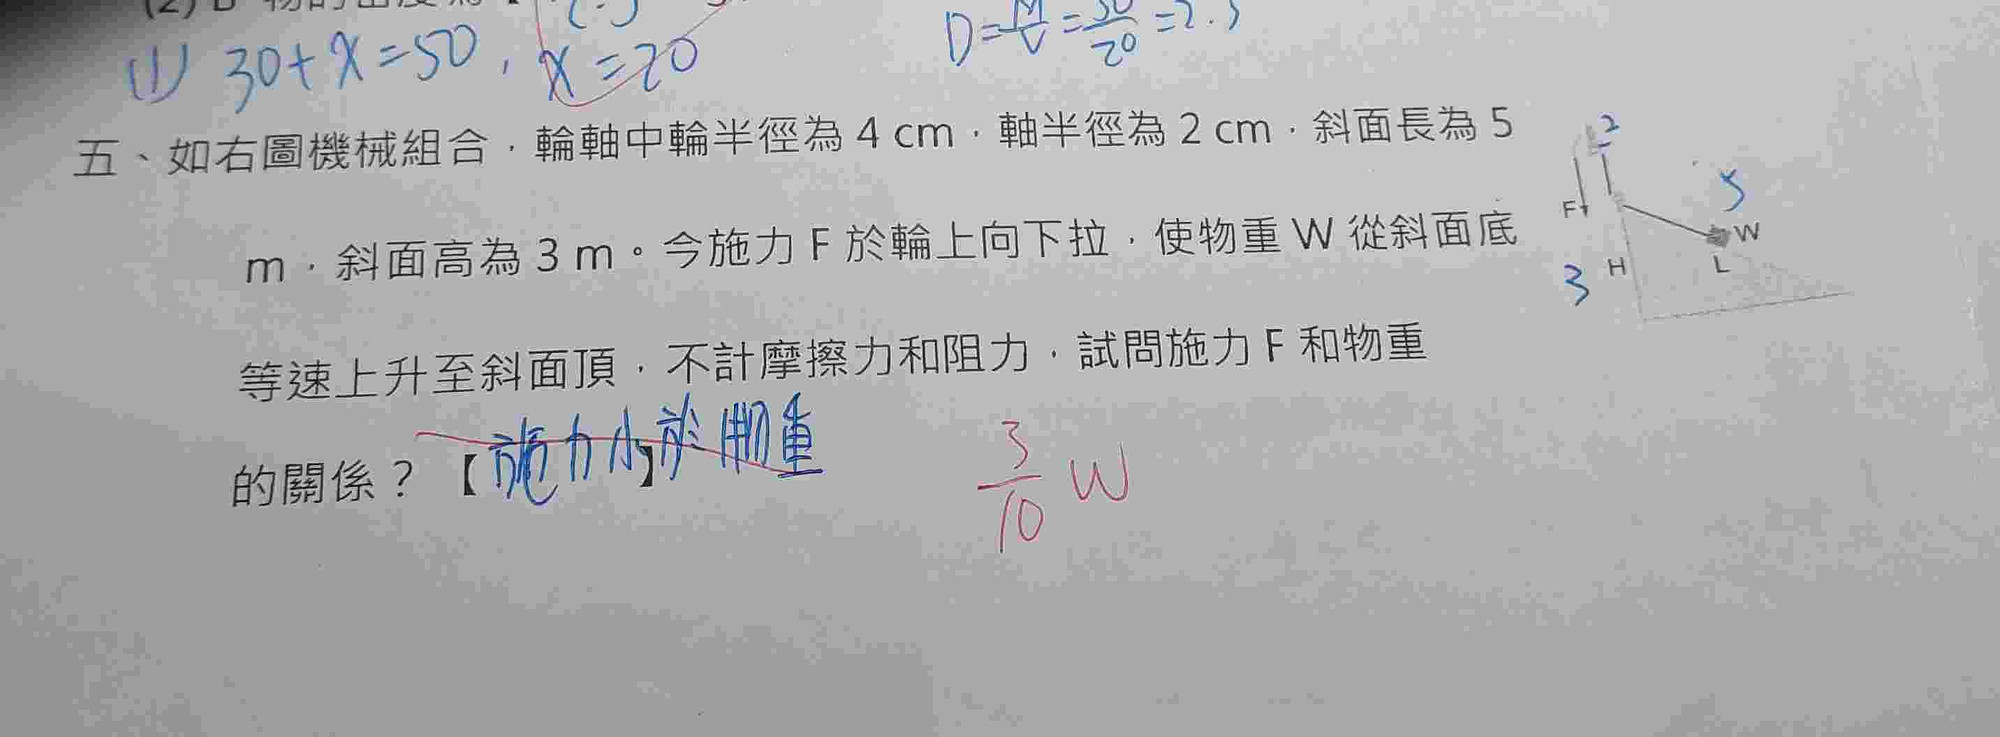 (1) 30+x=50, x=20
D=M/V=50/20=2.5
五、如右圖機械組合，輪軸中輪半徑為 4 cm，軸半徑為 2 cm，斜面長為 5
m，斜面高為 3 m。今施力 F 於輪上向下拉，使物重 W 從斜面底
等速上升至斜面頂，不計摩擦力和阻力，試問施力 F 和物重
的關係？【施力小於物重】
3/10 W
2
F
5
W
3 H
L